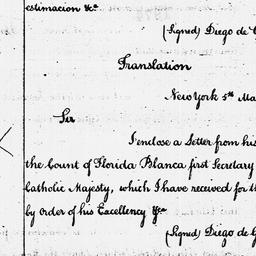 estimacion &ca
(Signed) Diego de
Translation
New York 5th Ma
Sir
I enclose a Letter from his
the Count of Florida Blanca first Secretary
Catholic Majesty, which I have received for th
by order of his Excellency &ca
(Signed) Diego de G